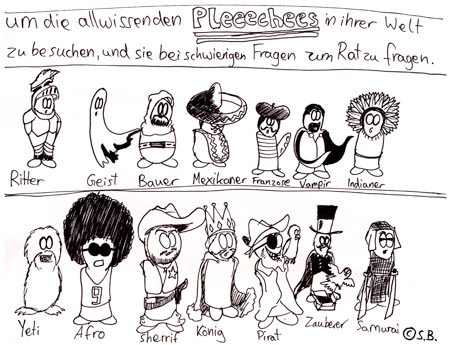 um die allwissenden PLEEECHEES in ihrer Welt
zu besuchen, und sie bei schwierigen Fragen zum Rat zu fragen.
Ritter Geist Bauer Mexikaner Franzose Vampir Indianer
9
Yeti Afro Sherrif König Pirat Zauberer Samurai
© S.B.